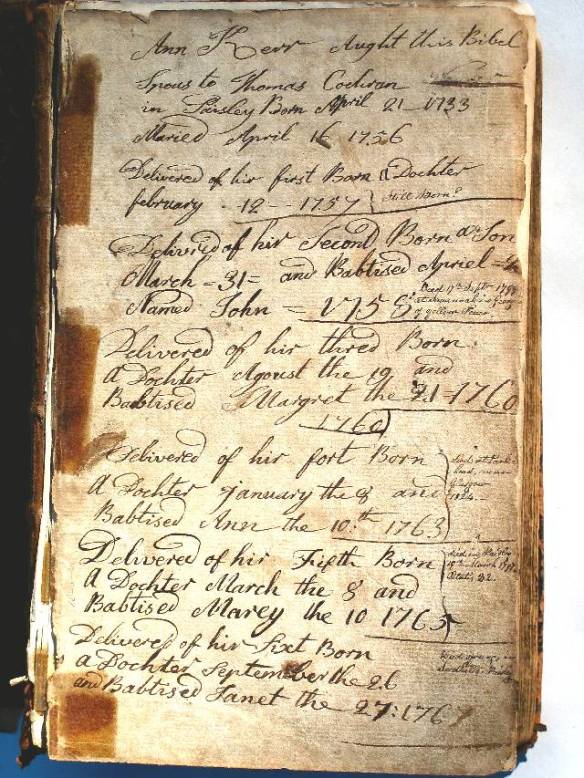 Ann Kerr Aught this Bibel
Spous to Thomas Cochran
in Paisley Born April 21 1733
Maried April 16 1756
Delivered of hir first Born a Dochter
february 12 1757 Still Born
Delivred of hir Second Born a Son
March 31 and Babtised Apriel
Named John 175
Dead 17th Septr
of yellow Fever
Delivered of hir thred Born
A Dochter Agoust the 19 and
Babtised Margret the 21 1760
1760
Delivered of hir fort Born
A Dochter January the 8 and
Babtised Ann the 10th 1763
Glasgow
Delivered of hir Fifth Born
A Dochter March the 8 and
Babtised Marey the 10 1765
died in Paisley
Delivered of hir Sixt Born
a Dochter September the 26
and Babtised Janet the 27: 1767